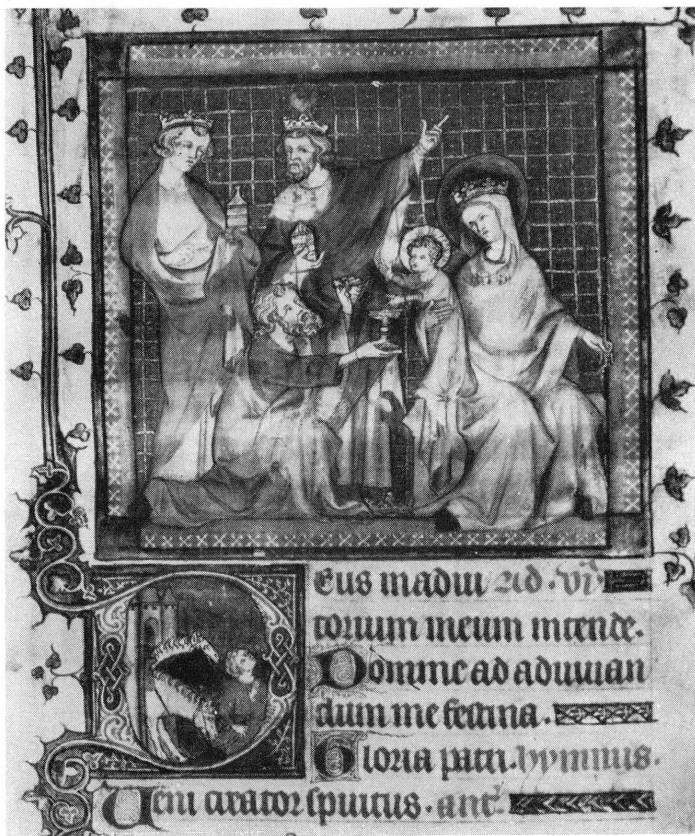 Eus in adiu ad. vi.
torium meum intende.
Domine ad adiuuan
dum me festina.
Gloria patri. hymnus.
Ueni creator spiritus. ant.